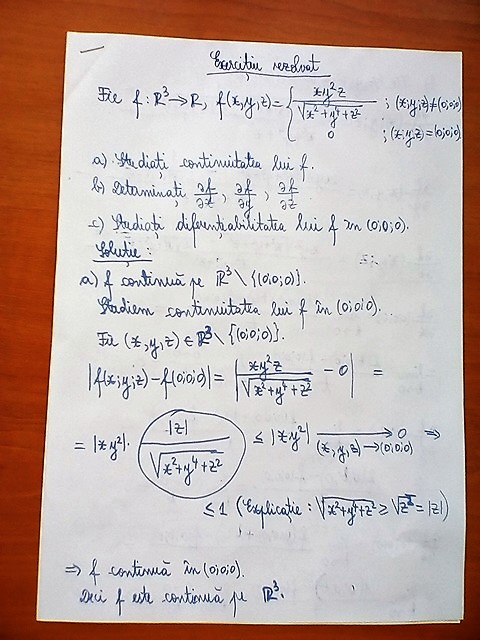 Exercițiu rezolvat
Fie f : ℝ³ → ℝ, f(x,y,z) = { xy²z / √(x²+y⁴+z²) ; (x;y;z) ≠ (0;0;0)
0 ; (x;y;z) = (0;0;0)
a) Studiați continuitatea lui f.
b) Determinați ∂f/∂x ; ∂f/∂y ; ∂f/∂z.
c) Studiați diferențiabilitatea lui f în (0;0;0).
Soluție :
a) f continuă pe ℝ³ \ {(0;0;0)}.
Studiem continuitatea lui f în (0;0;0).
Fie (x,y,z) ∈ ℝ³ \ {(0;0;0)}.
|f(x;y;z) − f(0;0;0)| = | xy²z / √(x²+y⁴+z²) − 0 | =
= |xy²| · |z| / √(x²+y⁴+z²) ≤ |xy²| ⟶ 0 ⇒
(x,y,z) → (0;0;0)
≤ 1 (Explicație : √(x²+y⁴+z²) ≥ √z² = |z|)
⇒ f continuă în (0;0;0).
Deci f este continuă pe ℝ³.